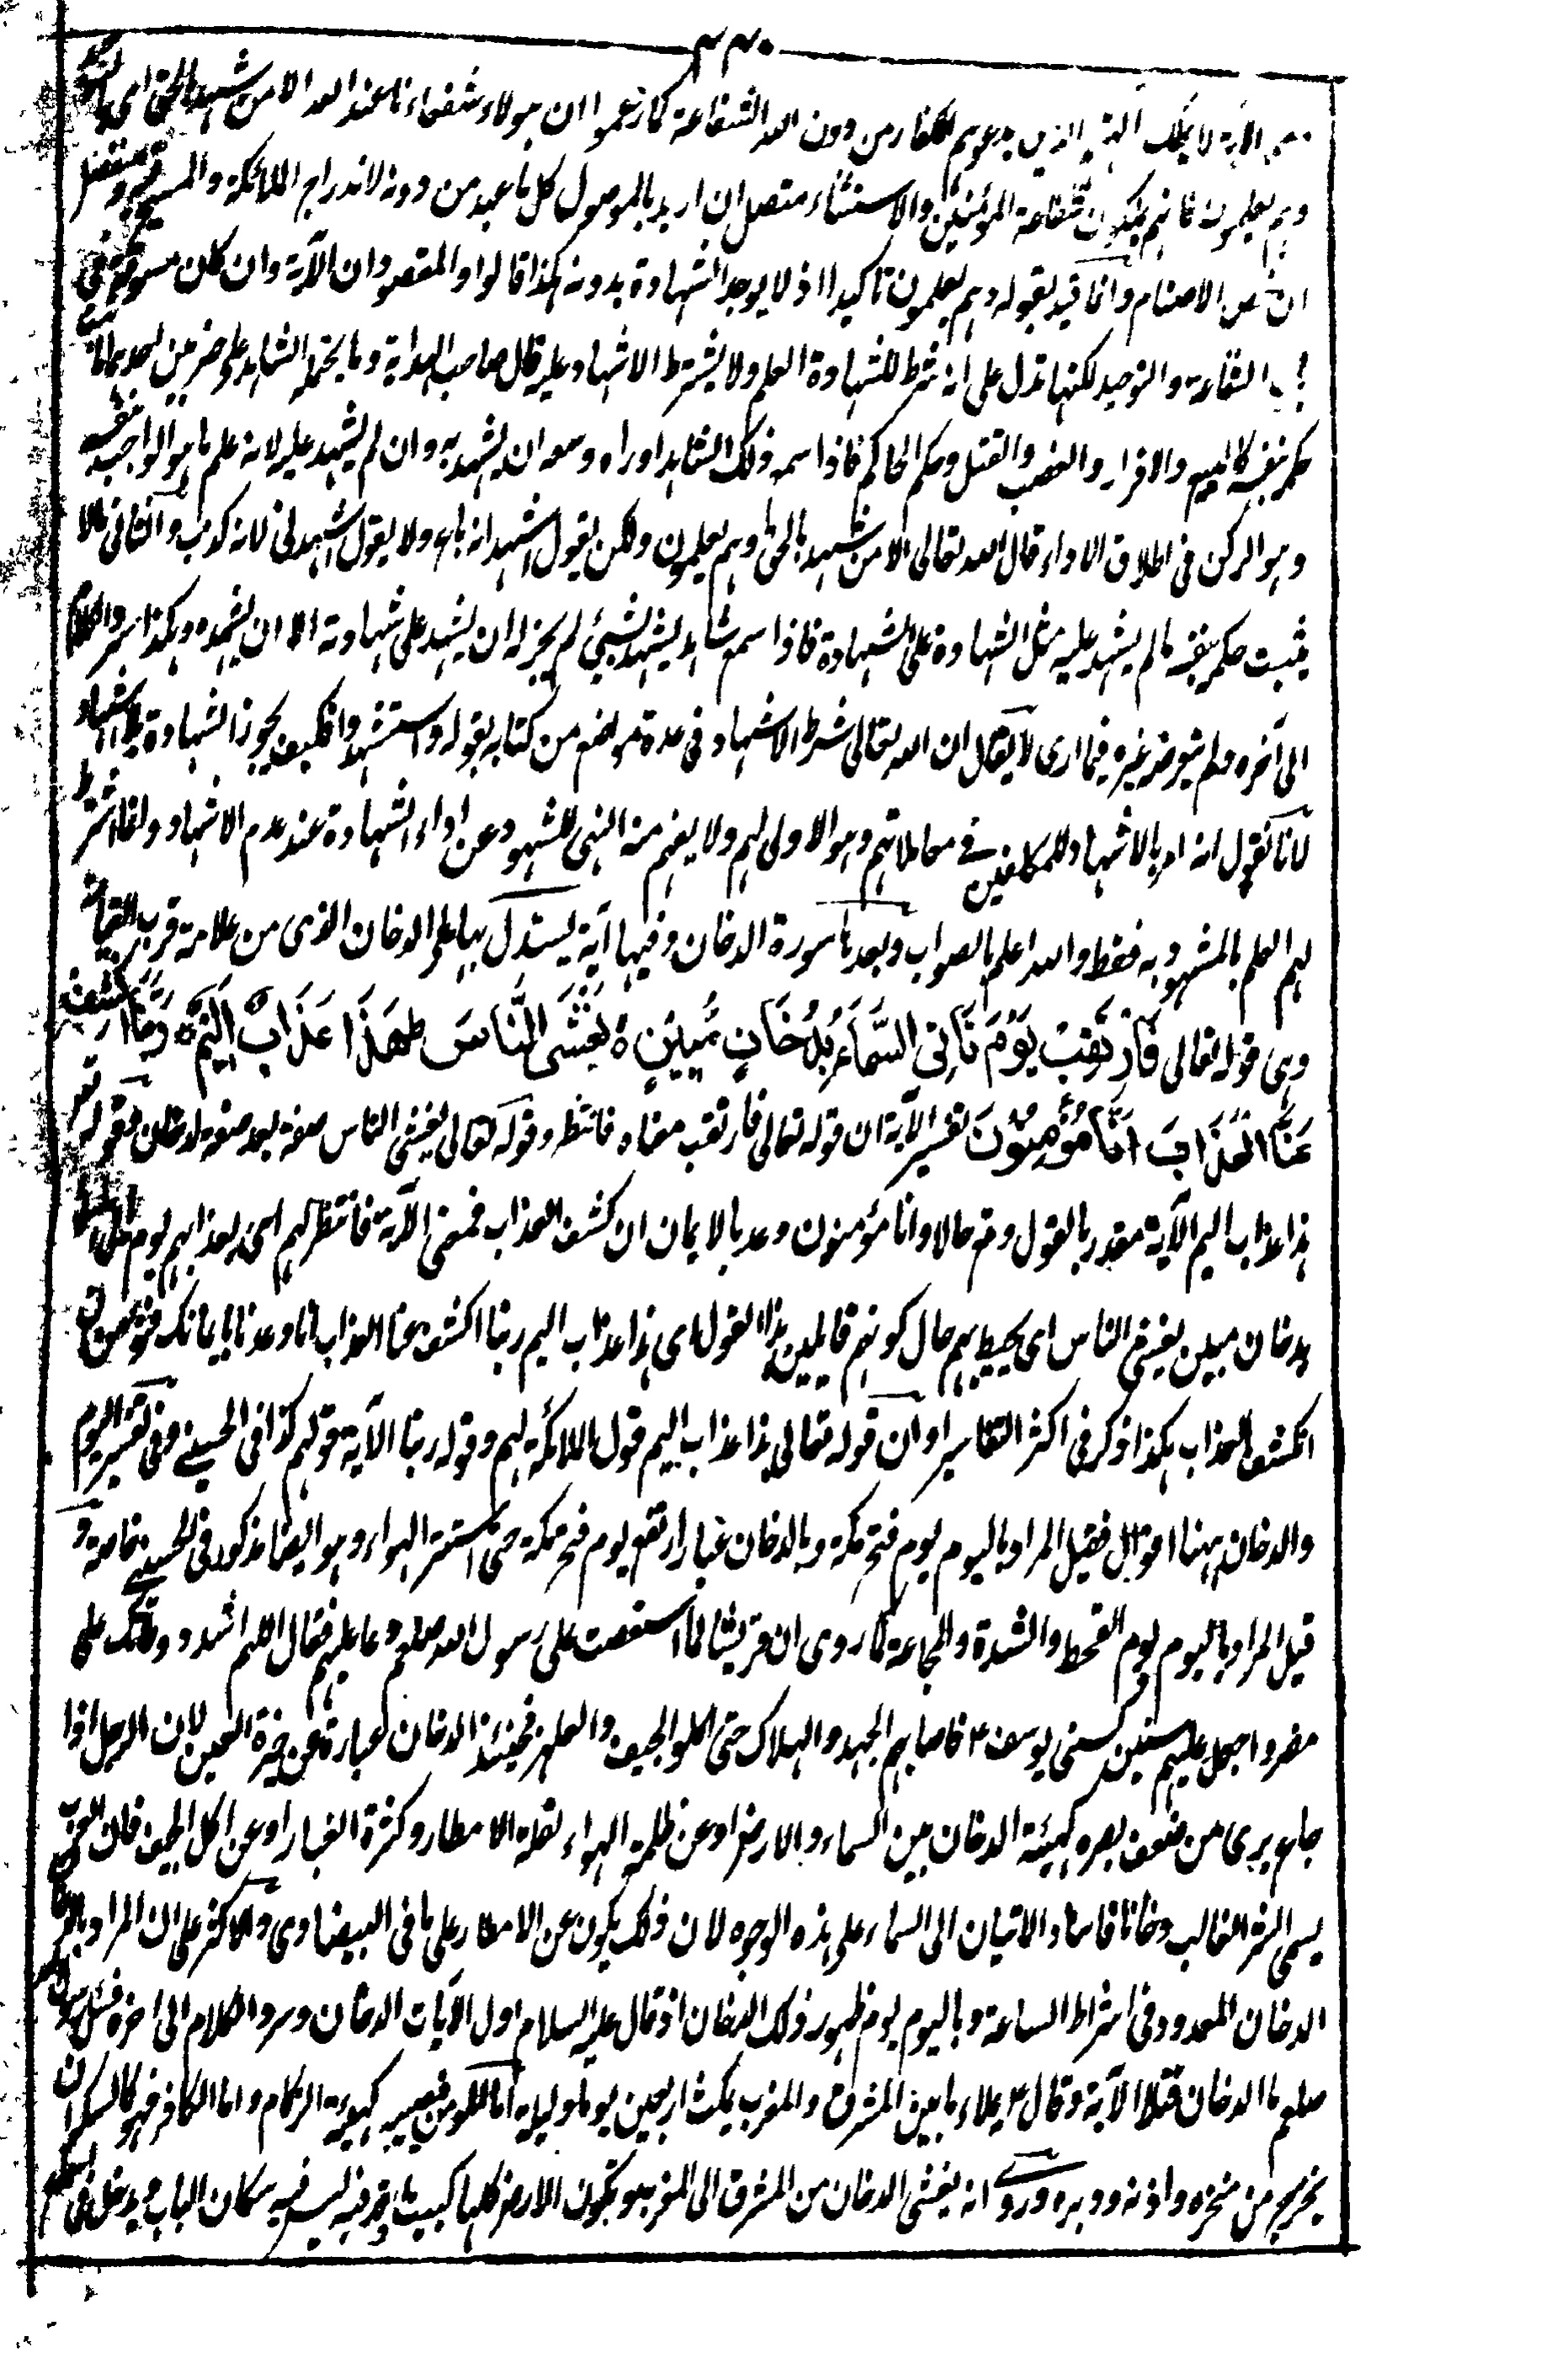 ۳۳۰
الآية لا يملك آلهتهم الذين يدعوهم الكفار من دون الله الشفاعة كما زعموا ان هولاء شفعاءنا عند الله الا من شهد بالحق اى بالتوحيد
وهم يعلمون فانهم يملكون شفاعة المؤمنين والاستثناء متصل ان اريد بالموصول كل ما عبد من دونه لاندراج الملائكة والمسيح فيه ومنفصل
ان خص الاصنام وانما قيد بقوله وهم يعلمون تاكيدا اذ لا يوجد الشهادة بدونه هكذا قالوا والمقصود ان الآية وان كان مسوقة فى
باب الشفاعة والتوحيد لكنها تدل على انه شرط للشهادة العلم ولا يشترط الاشهاد عليه قال صاحب الهداية وما يتحمله الشاهد على ضربين احدهما ما يثبت
حكمه بنفسه كالبيع والاقرار والغصب والقتل وحكم الحاكم فاذا سمع ذلك الشاهد او راه وسعه ان يشهد به وان لم يشهد عليه لانه علم ما هو الواجب بنفسه
وهو الركن فى اطلاق الاداء قال الله تعالى الا من شهد بالحق وهم يعلمون ولكن يقول اشهد انه باع ولا يقول اشهدنى لانه كذب والثانى ما لا
يثبت حكمه بنفسه ما لم يشهد عليه مثل الشهادة على الشهادة فاذا سمع شاهدا يشهد بشيئ لم يجز له ان يشهد على شهادته الا ان يشهده وهكذا سرد الكلام
الى آخره ولم يتعرضه غيره فيما ارى لا يقال ان الله تعالى شرط الاشهاد فى عدة مواضع من كتابه بقوله واستشهدوا فكيف يجوز الشهادة بلا اشهاد
لانا نقول انه امر بالاشهاد للمكلفين فى معاملاتهم وهو الاولى لهم ولا يفهم منه النهى للشهود عن اداء الشهادة عند عدم الاشهاد وانما اشترط
لهم العلم بالمشهود به فقط والله اعلم بالصواب وبعدها سورة الدخان وفيها آية يستدل بها على الدخان الذى من علامة قرب القيامة
وهى قوله تعالى فَارْتَقِبْ يَوْمَ تَأْتِى السَّمَاءُ بِدُخَانٍ مُّبِيْنٍ ۝ يَغْشَى النَّاسَ ط هٰذَا عَذَابٌ اَلِيْمٌ ۝ رَبَّنَا اكْشِفْ
عَنَّا الْعَذَابَ اِنَّا مُؤْمِنُوْنَ تفسير الآية ان قوله تعالى فارتقب معناه فانتظر وقوله تعالى يغشى الناس صفة بعد صفة لدخان وقوله تعالى
هذا عذاب اليم الآية مقدر بالقول وقع حالا وانا مؤمنون وعد بالايمان ان كشف العذاب فمعنى الآية فانتظر لهم اى لعذابهم يوم تاتى السماء
بدخان مبين يغشى الناس اى يحيط بهم حال كونهم قايلين هذا القول اى هذا عذاب اليم ربنا اكشف عنا العذاب انا وعدنا بايمانك فنؤمن ان
انكشف العذاب هكذا ذكر فى اكثر التفاسير او ان قوله تعالى هذا عذاب اليم قول الملائكة لهم وقوله ربنا الآية قولهم كذا فى الحسينى وفى تفسير اليوم
والدخان ههنا اقوال فقيل المراد باليوم يوم فتح مكة وبالدخان غبار ارتفع يوم فتح مكة حتى استتر الهواء وهو ايضا مذكور فى الحسينى خاصة و
قيل المراد باليوم يوم القحط والشدة والمجاعة كما روى ان قريشا لما استعصت على رسول الله صلعم دعا عليهم فقال اللهم اشدد وطأتك على
مضر واجعل عليهم سنين كسنى يوسف ع فاصابهم الجهد والهلاك حتى اكلوا الجيف والعلهز فحينئذ الدخان عبارة عن خيرة العين لان الرجل اذا
جاع يرى من ضعف بصره كهيئة الدخان بين السماء والارض او عن ظلمة الهواء لقلة الامطار وكثرة الغبار او عن اكل الجيف فان العرب
يسمى الشر الغالب دخانا فاسناد الاتيان الى السماء على هذه الوجوه لان ذلك يكون عن الامطار على ما فى البيضاوى والاكثر على ان المراد بالدخان
الدخان المعدود فى اشراط الساعة وباليوم يوم ظهور ذلك الدخان اذ قال عليه السلام اول الآيات الدخان وسرد الكلام الى اخره فسئل رسول الله
صلعم ما الدخان فتلا الآية وقال ع يملاء ما بين المشرق والمغرب يمكث اربعين يوما وليلة اما المومن فيصيبه كهيئة الزكام واما الكافر فهو كالسكران
يخرج من منخره واذنه ودبره وروى انه يغشى الدخان من المشرق الى المغرب وتكون الارض كلها كبيت اوقد فيه ليس فيه مكان الباب ويدخل فى